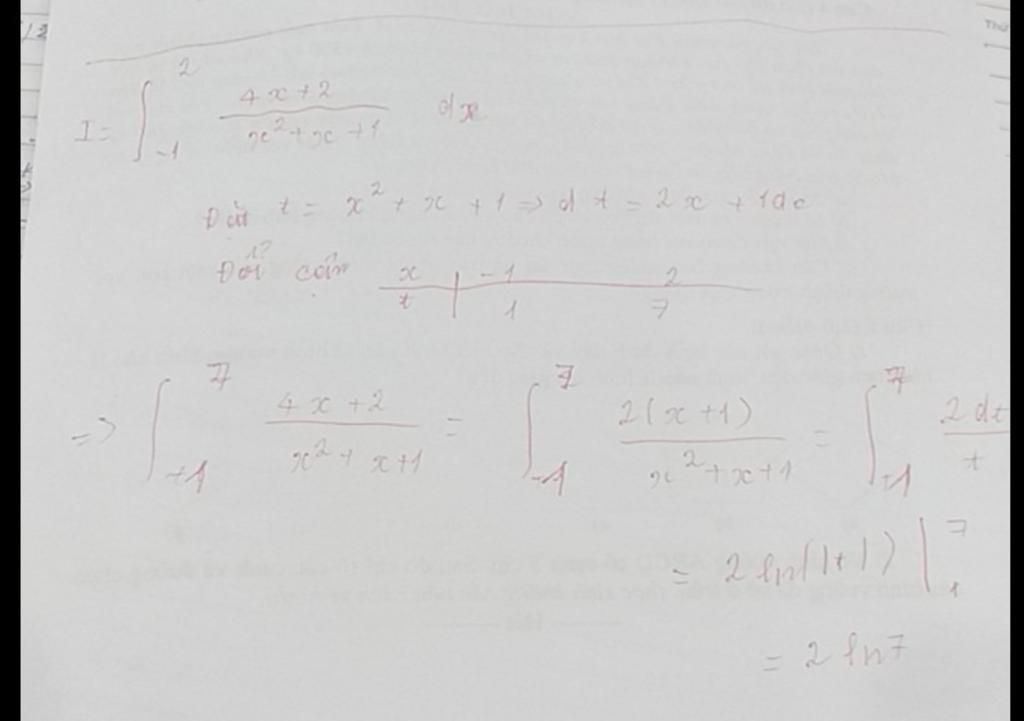 I = ∫_{-1}^{2} (4x+2)/(x²+x+1) dx
Đặt t = x² + x + 1 => dt = 2x + 1 dx
Đổi cận x | -1 2
t | 1 7
=> ∫_{+1}^{7} (4x+2)/(x²+x+1) = ∫_{-1}^{7} 2(x+1)/(x²+x+1) = ∫_{+1}^{7} 2dt/t
= 2 ln(|t|) |_{1}^{7}
= 2 ln7